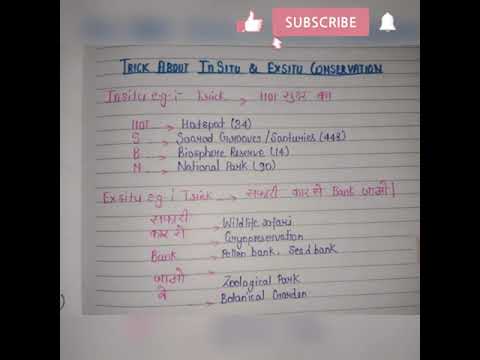 SUBSCRIBE
TRICK ABOUT INSITU & EXSITU CONSERVATION
Insitu eg:- Trick → HOT का
HOT → Hotspot (34)
S → Sacred Grooves/Santuries (448)
B → Biosphere Reserve (14)
N → National Park (90)
Exsitu eg: Trick → सफारी कार से Bank जाओ।
सफारी → Wildlife safari
कार से → Cryopreservation
Bank → Pollen bank, Seed bank
जाओ → Zoological Park
वे → Botanical Garden